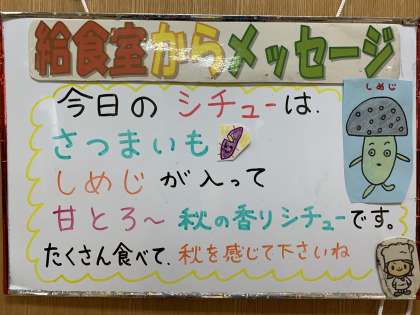 給食室からメッセージ
しめじ
今日の シチューは.
さつまいも
しめじ が 入って
甘とろ〜 秋の香りシチューです。
たくさん食べて、秋を感じて下さいね